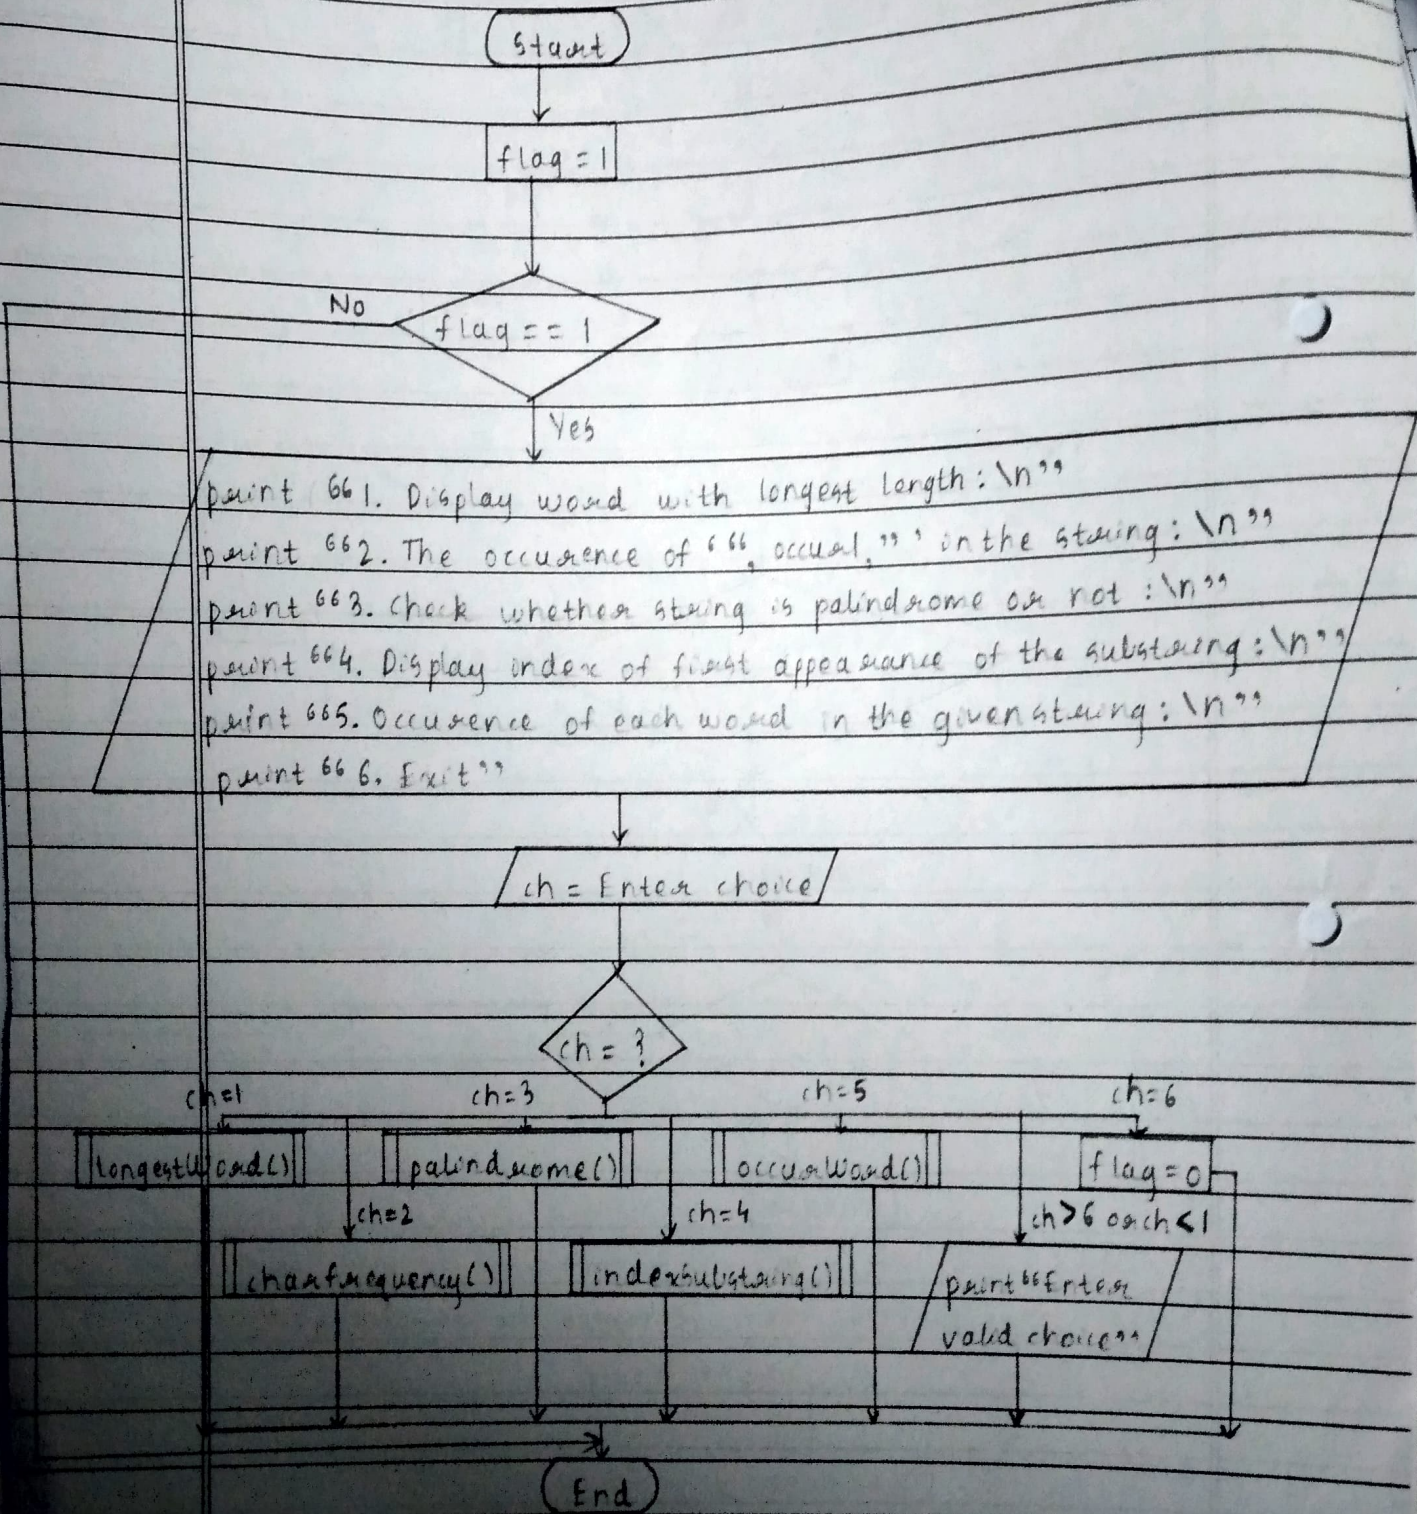 Start
flag = 1
No
flag == 1
Yes
print “1. Display word with longest length : \n”
print “2. The occurence of ‘“, occur, ”’ in the string : \n”
print “3. Check whether string is palindrome or not : \n”
print “4. Display index of first appearance of the substring : \n”
print “5. Occurence of each word in the given string : \n”
print “6. Exit”
ch = Enter choice
ch = ?
ch=1 ch=3 ch=5 ch=6
longestWord() palindrome() occurWord() flag=0
ch=2 ch=4 ch>6 or ch<1
charfrequency() indexsubstring() print “Enter
valid choice”
End